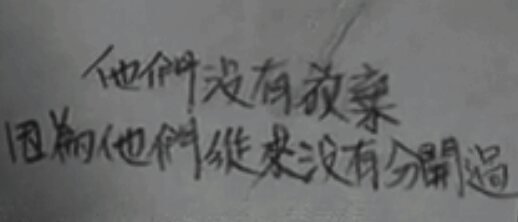 他們没有放棄
因為他們從來没有分開過